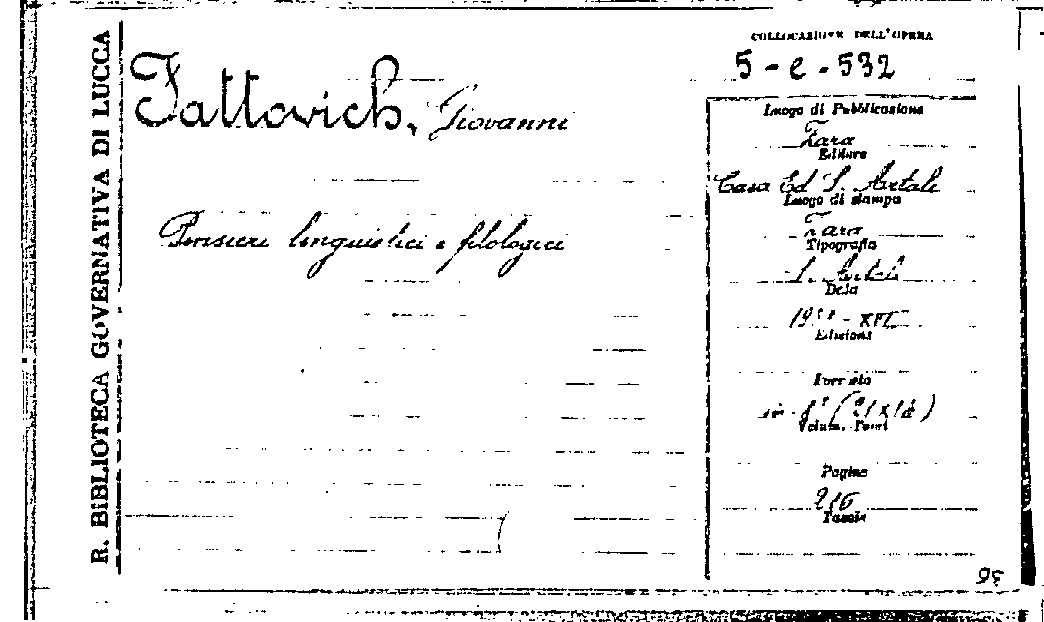 R. BIBLIOTECA GOVERNATIVA DI LUCCA
Fattovich, Giovanni
Pensieri linguistici e filologici
COLLOCAZIONE DELL'OPERA
5 - e - 532
Luogo di Pubblicazione
Zara
Editore
Casa Ed. S. Artale
Luogo di stampa
Zara
Tipografia
S. Artale
Data
XVI
Edizione
Formato
in - 8°
Volum. Parti
Pagine
216
Tavole